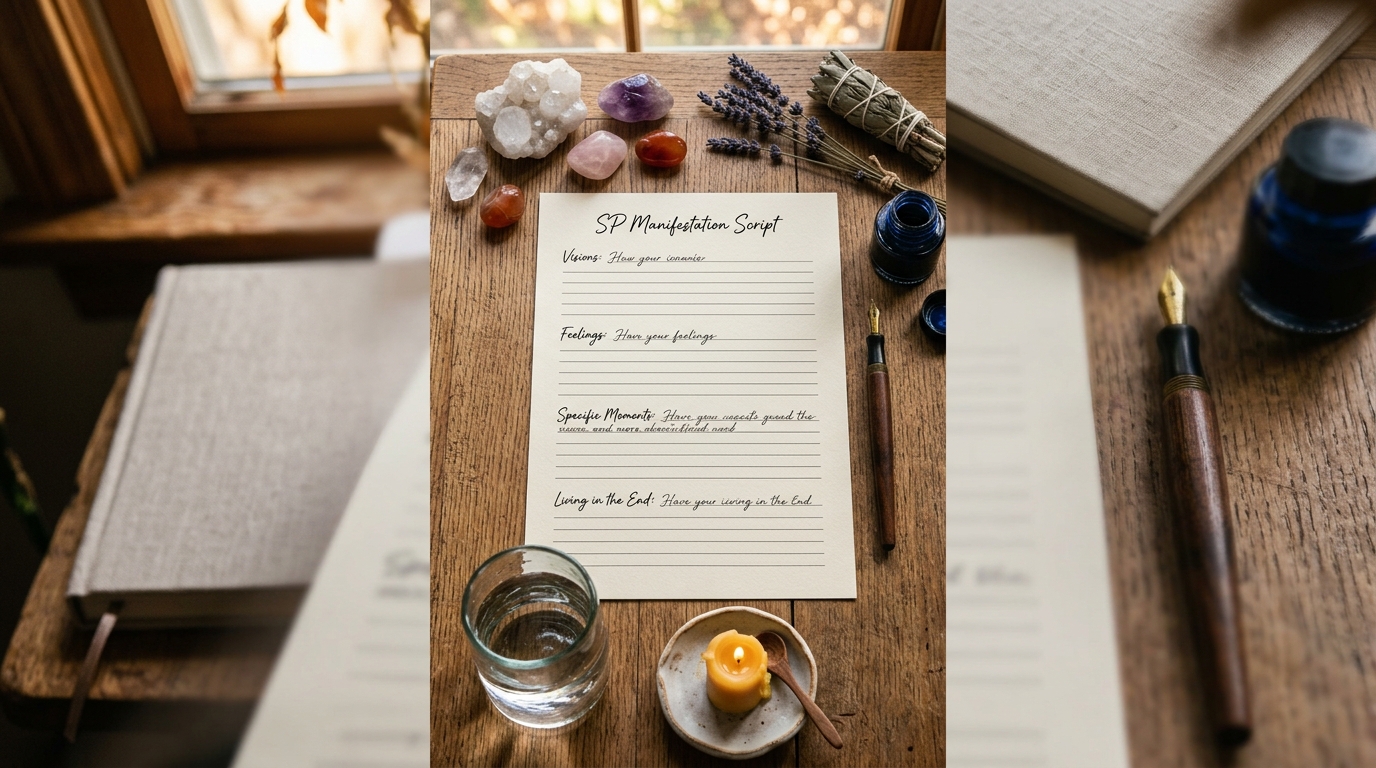 SP Manifestation Script
Visions:
Feelings: Have your feelings
Specific Moments: Have your the
and more
Living in the End: Have your living in the End.